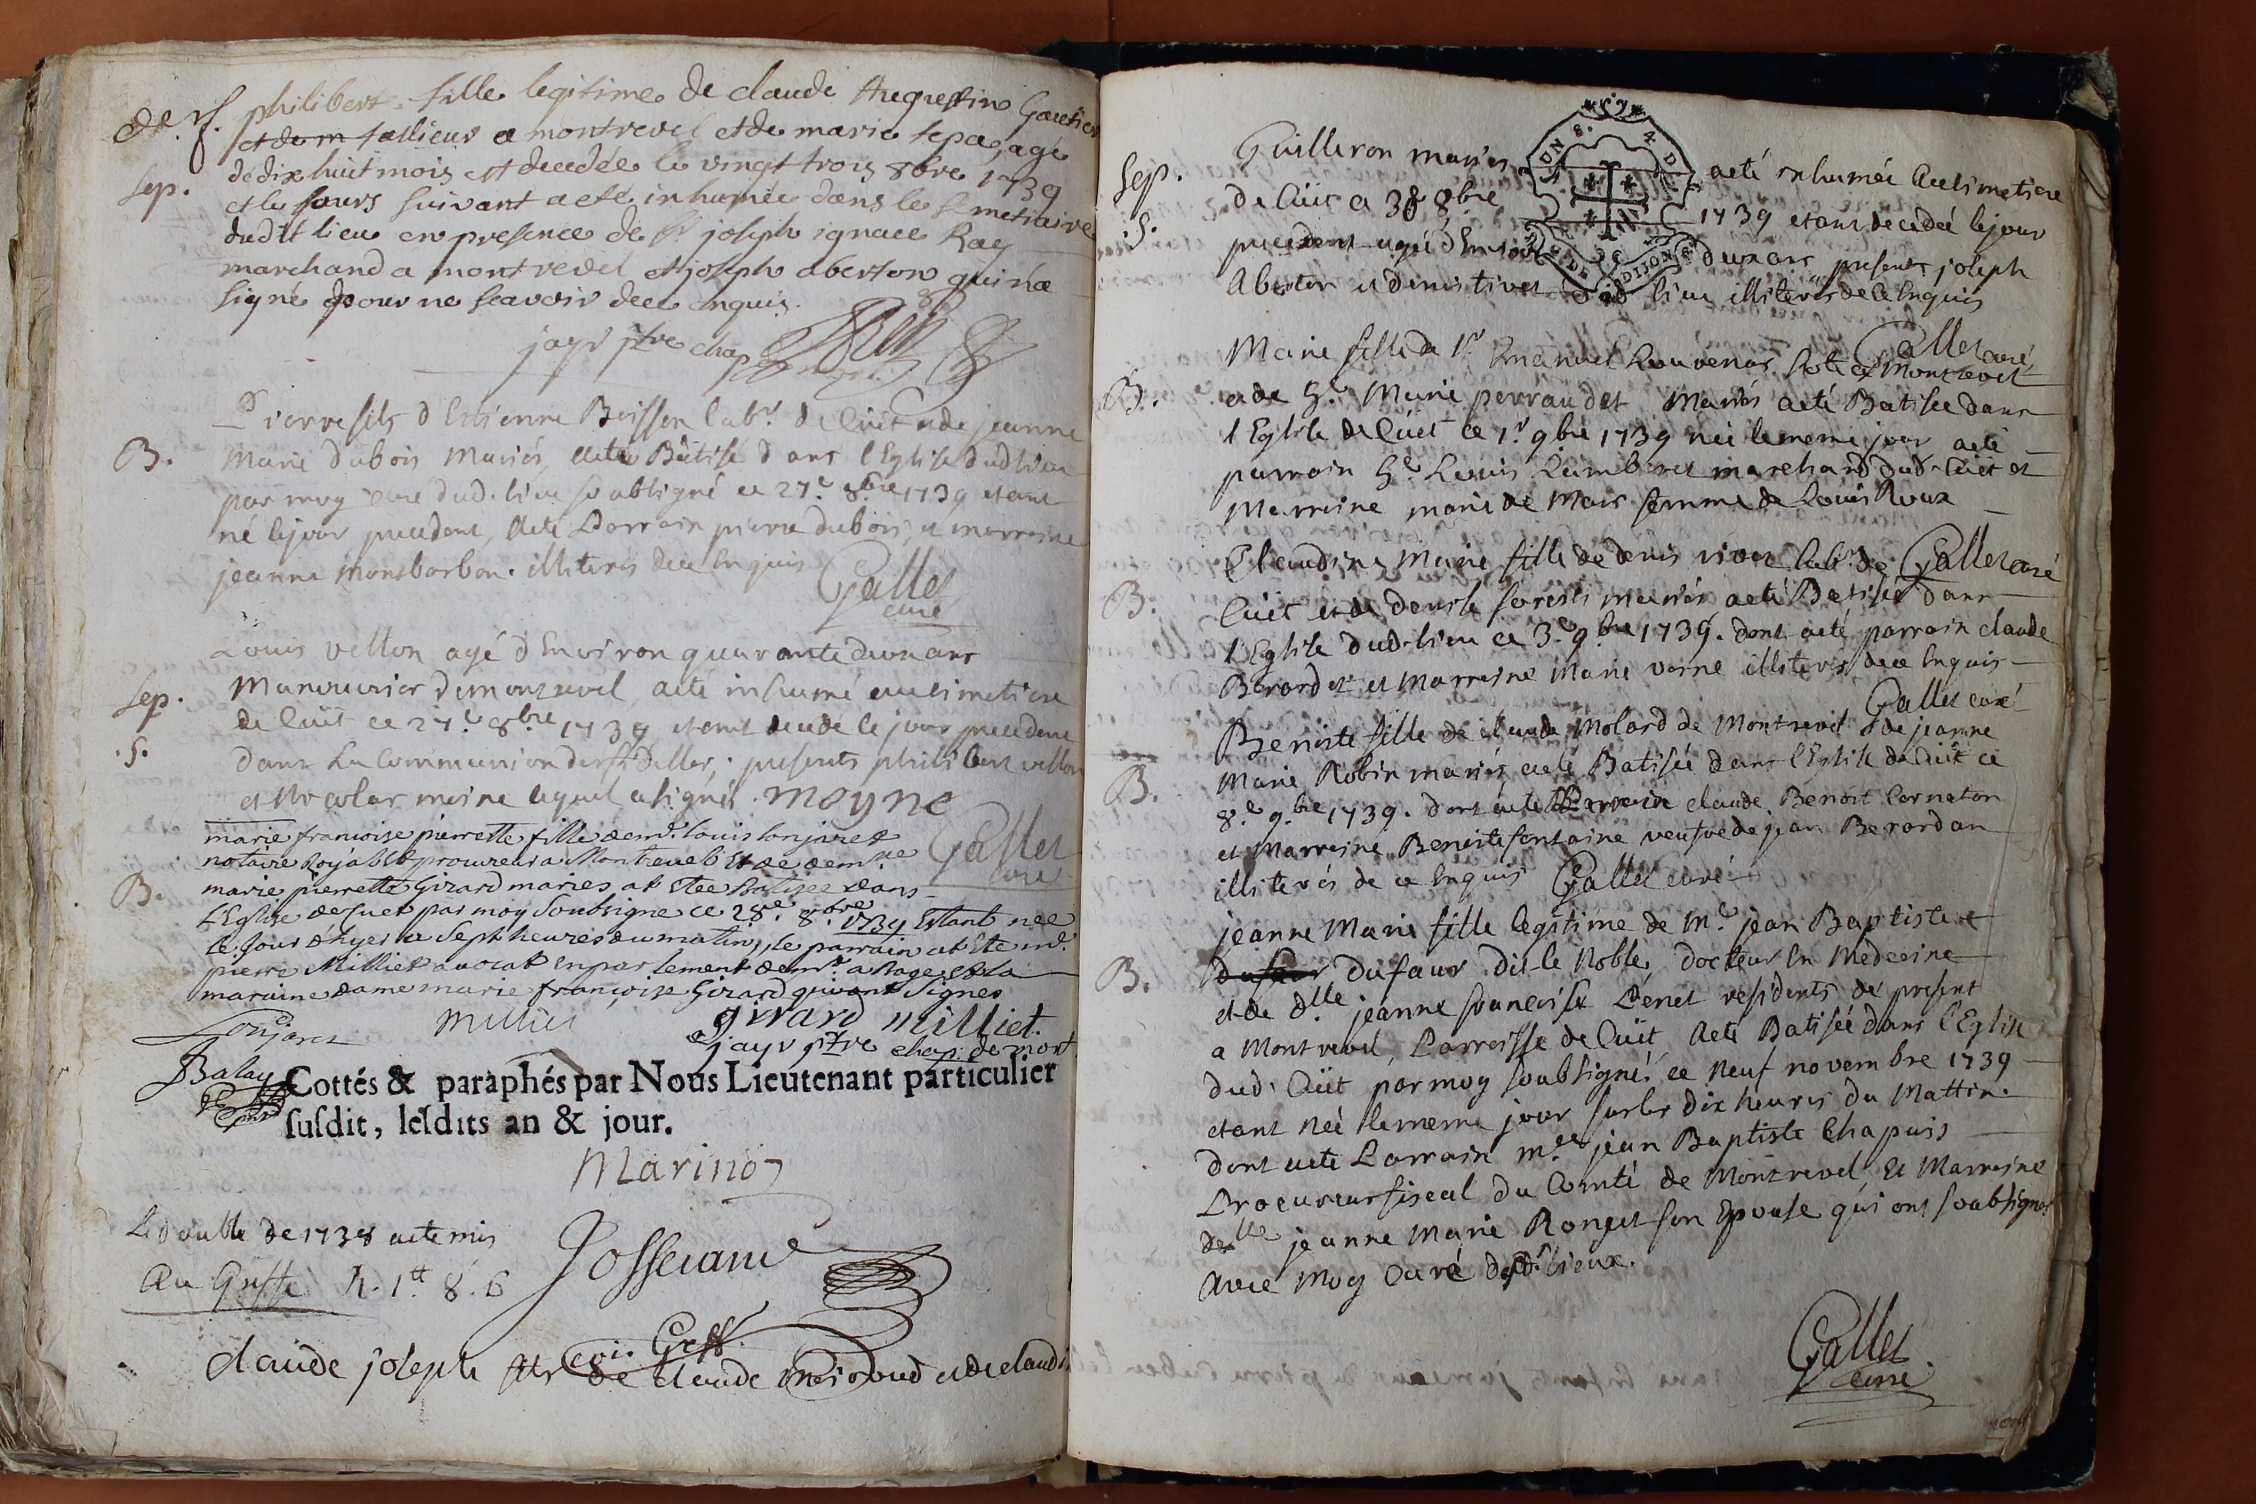 philibert fille legitime de claude Augustin Gautier
et de m tallieur a montrevel et de marie lepage, agé
de dix huit mois est decedée le vingt trois 8bre 1739
Sep.
et le jours suivant a eté inhumée dans le semetiaire
dudit lieu en presence de Sr joseph ignace Ray
marchand a montrevel et joseph aberton qui n'a
signé pour ne scavoir de ce enquis.
jayr ptre chap
Pierre fils d'Estienne Buisson labr. de Cüet et de jeanne
B.
Marie dubois mariés, a eté Bâtisé dans l'Eglise dud. lieu
par moy curé dud. lieu soubsigné ce 27e 8bre 1739 etant
né le jour precedent, a eté Parrain pierre dubois, et marraine
jeanne Montbarbon. illiterés de ce enquis
Gallet
curé
Louis vellon agé d'Environ quarante deux ans
Sep.
Manouvrier de montrevel a eté inhumé au cimetiere
de Cüet ce 27e 8bre 1739 etant decedé le jour precedent
.S.
dans La Communion des fidelles; presents philibert vellon
et Nicolas moine lequel a signé. moyne
Gallet
curé
marie francoise pierrette fille de mr. louis lonjaret
notaire Royal & procureur a Montrevel Et de demlle
B.
marie pierrette Girard maries at Etee batisee dans
L'Eglise de Cuet par moy Soubsigne ce 28e. 8bre. 1739 Estant née
le jour d'hyer a Sept heures du matin, le parrain at Ete mr.
pierre Milliet avocat en parlement de mr. a Bage et la
maraine dame marie françoise Girard qui ont Signes
Lonjaret Milliet girard milliet.
jayr ptre chap. de mont
Balay
Cottés & paraphés par Nous Lieutenant particulier
susdit, lesdits an & jour.
Marinon
Le double de 1738 a eté mis
Au Greffe R. 1tt 8. 6
Josserand
Coi. Greff.
claude joseph fils de claude
Guilleron mariés a eté inhumée au cimetiere
Sep.
de Cüet ce 30 8bre 1739 etant decedée le jour
.S.
precedent agée d'Environ deux ans presents joseph
Aberton et denis tivet dud. lieu illiterés de ce enquis
Gallet curé
Marie fille de Sr. Emanuel Louvenas hote a Montrevel
B.
et de h.e Marie perraudet Mariés a eté Batisée dans
l'Eglise de Cüet ce 1r 9bre 1739 née le meme jour a eté
parrain h.e Louis Lambert marchand dud. Cüet et
Marraine marie de Mars femme de Louis Roux
Gallet curé
Claudine Marie fille de denis labr. de
B.
Cüet et de mariés a eté Batisée dans
l'Eglise dud. lieu ce 3e 9bre 1739. dont a eté parrain claude
Berardet et Marraine Marie verne illiterés de ce enquis
Gallet curé
Benoite fille de claude Molard de Montrevel & de jeanne
B.
Marie Robin mariés a eté Batisée dans l'Eglise de Cüet ce
8e 9bre 1739. dont a eté Parrain claude Benoit Cornaton
et Marraine Benoite fontaine veufve de jean Berardan
illiterés de ce Enquis Gallet curé
jeanne Marie fille legitime de Mr. jean Baptiste
B.
dufaur dufaur dit le Noble, Docteur En Medecine
et de dlle jeanne francoise Penet residents de present
a Montrevel, Parroisse de Cüet, a eté Batisée dans l'Eglise
dud. Cüet par moy soubsigné ce Neuf novembre 1739
etant née le meme jour sur les dix heures du Mattin.
dont a eté Parrain mre jean Baptiste Chapuis
Procureur fiscal du Comté de Montrevel, Et Marraine
delle jeanne Marie Ronget son Epouse qui ont soubsignés
avec Moy Curé desd. Lieux.
Gallet
curé